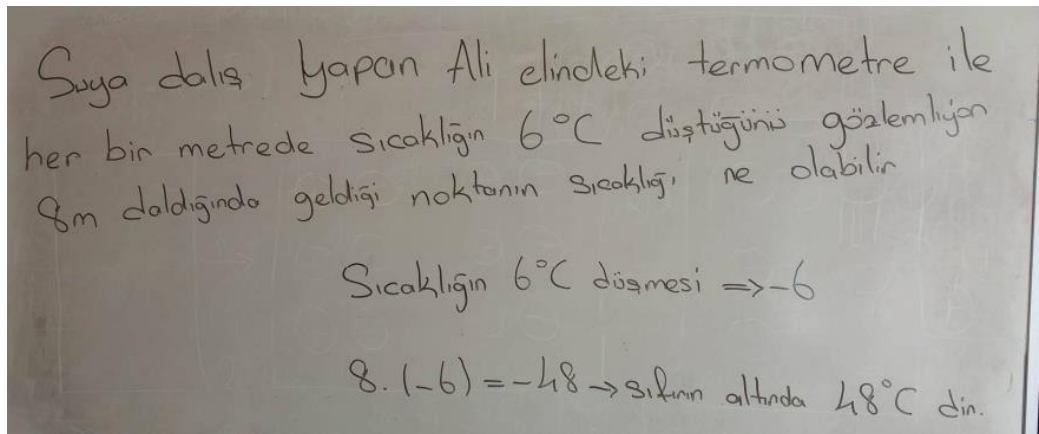 Suya dalış yapan Ali elindeki termometre ile
her bir metrede sıcaklığın 6°C düştüğünü gözlemliyor
8m daldığında geldiği noktanın sıcaklığı ne olabilir
Sıcaklığın 6°C düşmesi => -6
8. (-6) = -48 → sıfırın altında 48°C dir.